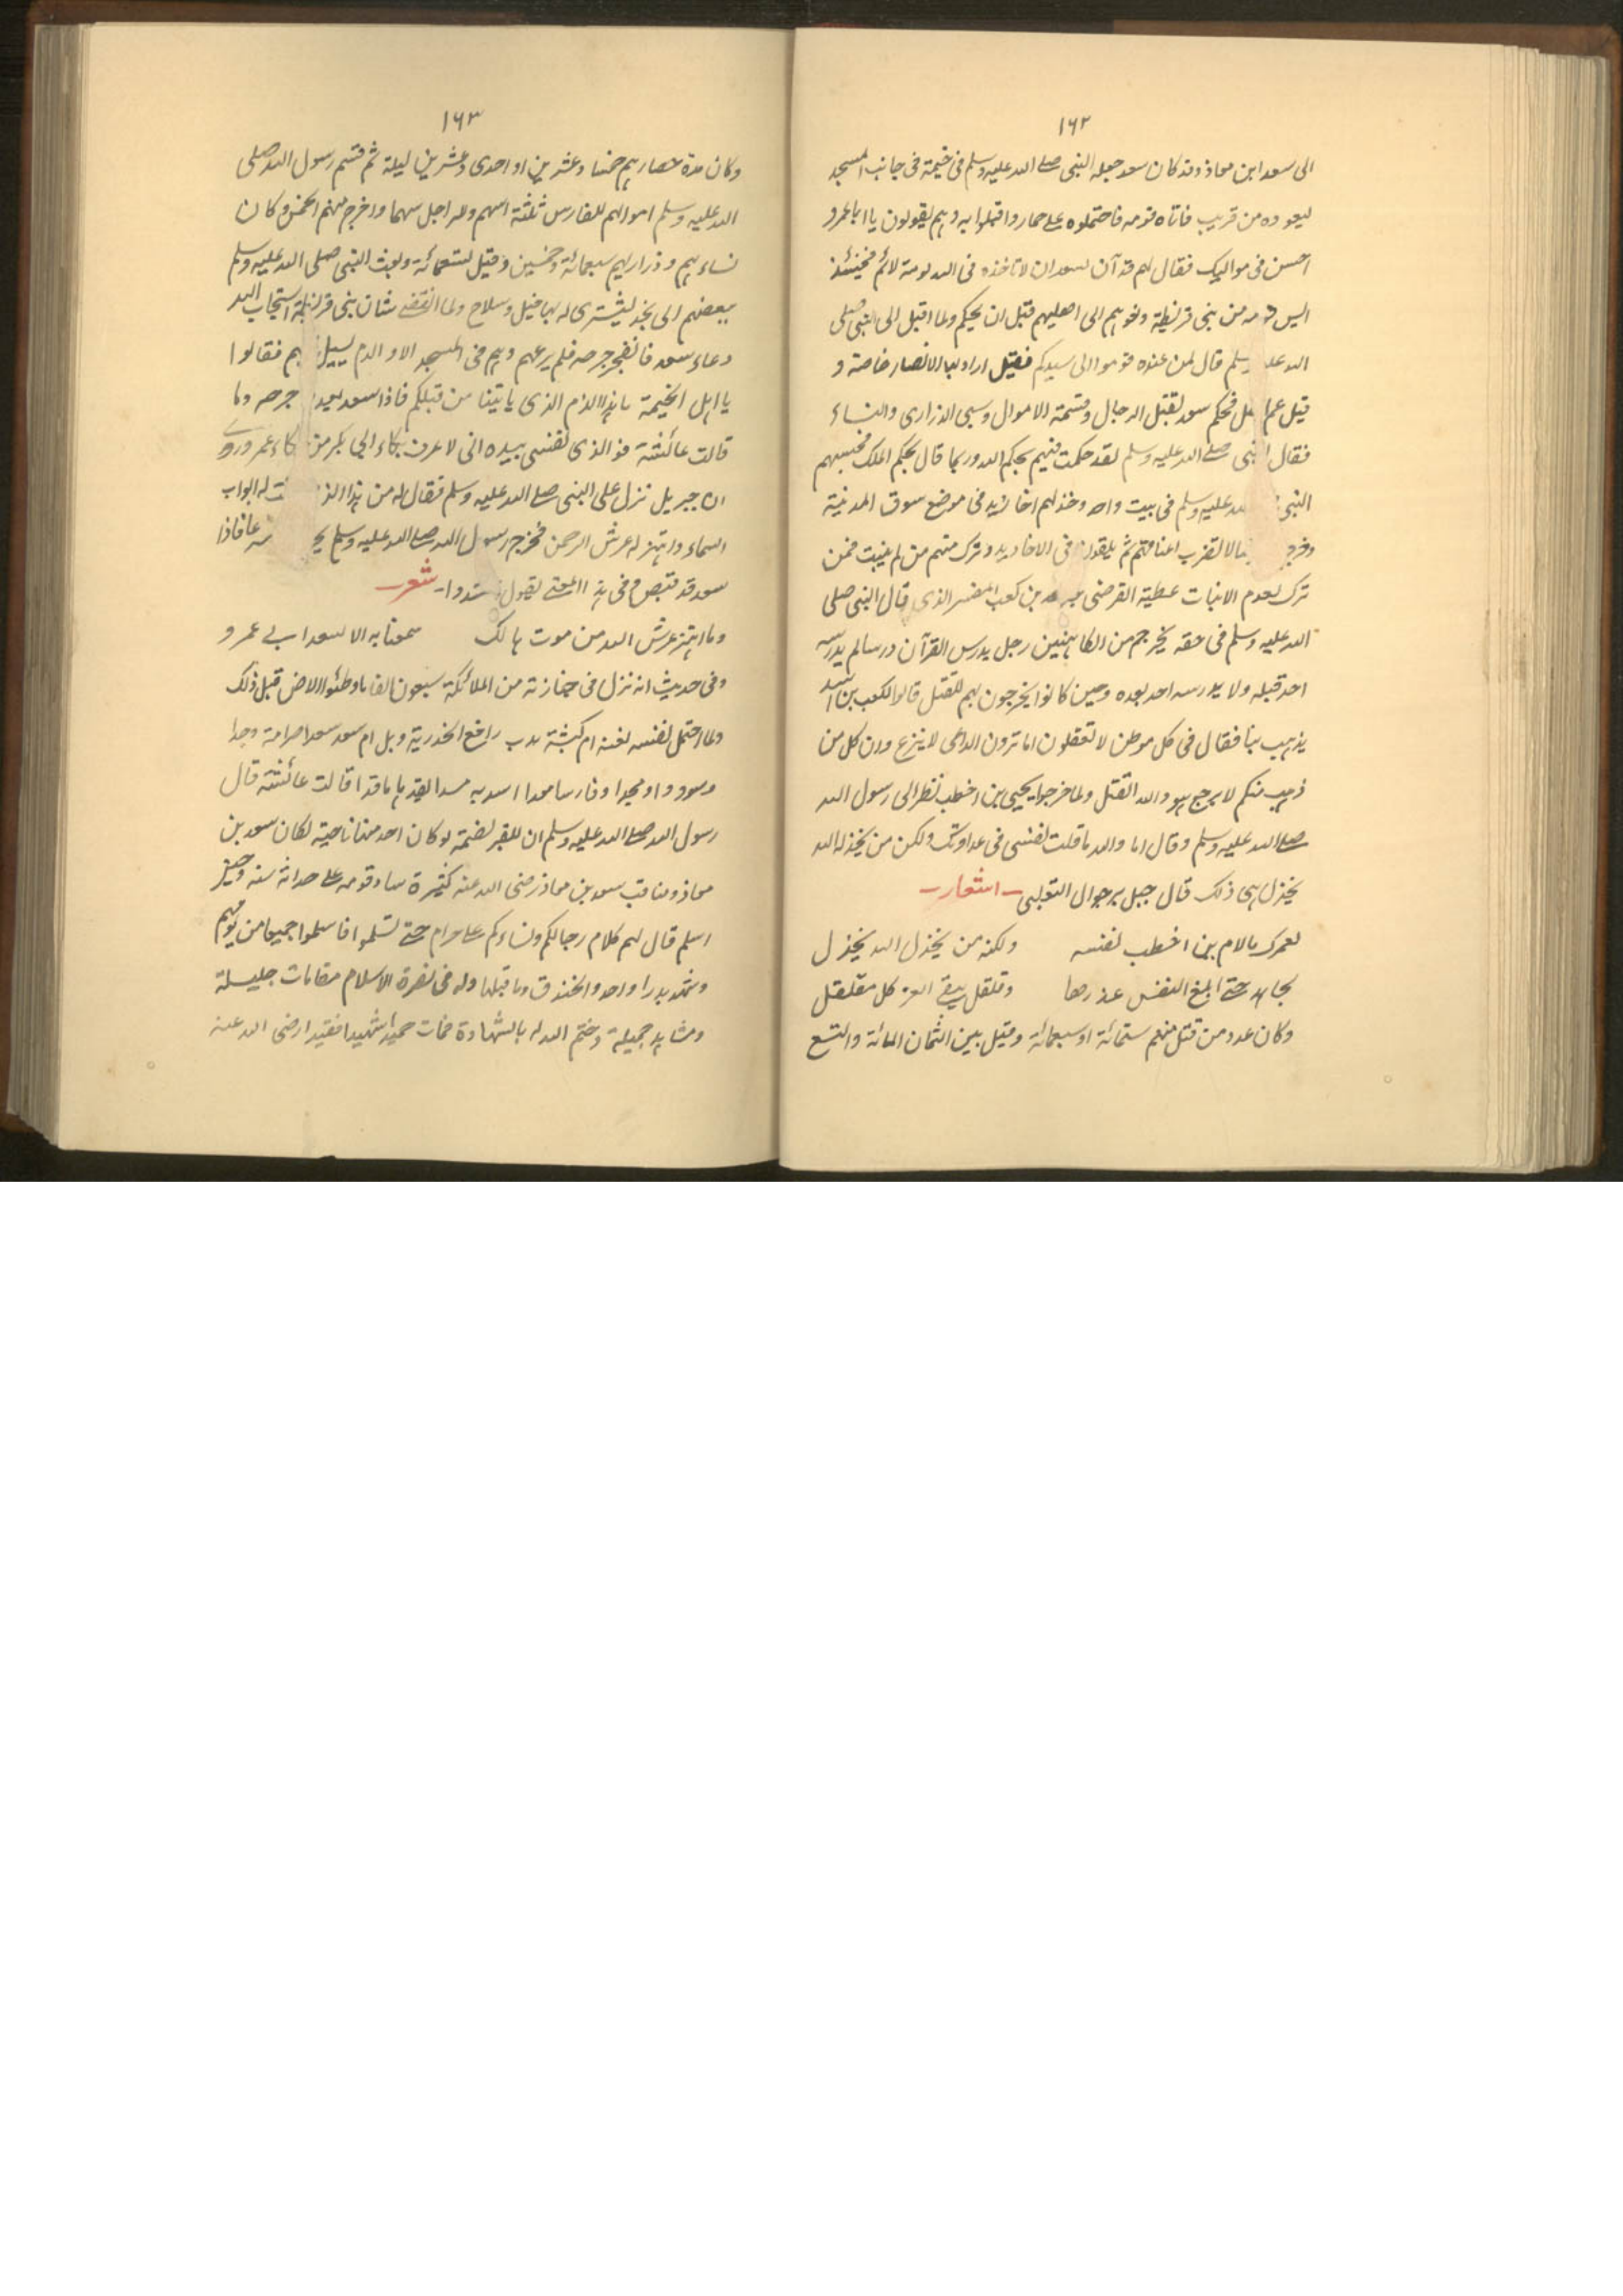 ١٦٢
الى سعد ابن معاذ وقد كان سعد جعله النبى صلے الله عليه وسلم فى خيمة فى جانب المسجد
ليعوده من قريب فاتاه قومه فاحتملوه علے حمار واقبلوا به وهم يقولون يا ابا عمرو
احسن فى مواليك فقال لهم قد آن لسعد ان لا تاخذه فى الله لومة لائم فحينئذ
ايس قومه من بنى قريظة ونعوهم الى اهليهم قبل ان يحكم ولما اقبل الى النبى صلى
الله عليه وسلم قال لمن عنده قوموا الى سيدكم فقيل اراد بها الانصار خاصة و
قيل عم الكل فحكم سعد بقتل الرجال وقسمة الاموال وسبى الذرارى والنساء
فقال النبى صلے الله عليه وسلم لقد حكمت فيهم بحكم الله وربما قال بحكم الملك فحبسهم
النبى الله عليه وسلم فى بيت واحد وخذ لهم اخاديد فى موضع سوق المدينة
وخرج بهم ارسالا لتضرب اعناقهم ثم يلقون فى الاخاديد وترك منهم من لم ينبت فمن
ترك لعدم الانبات عطية القرضى بن كعب المفسر الذى قال النبى صلى
الله عليه وسلم فى حقه يخرج من الكاهنين رجل يدرس القرآن درسا لم يدرسه
احد قبله ولا يدرسه احد بعده وحين كانوا يخرجون بهم للقتل قالوا لكعب بن اسد
يذهب بنا فقال فى كل موطن لا تعقلون اما ترون الداعى لا ينزع وان كل من
ذهب منكم لا يرجع هو والله القتل ولما خرجوا بحيى بن اخطب نظر الى رسول الله
صلے الله عليه وسلم وقال اما والله ما قلت لفنسى فى عداوتك ولكن من يخذله الله
يخذل وفى ذلك قال جبل بن جوال التعلبى ــ اشعار ــ
لعمرك ما لام بن اخطب لفنسه ولكنه من يخذل الله يخذل
يجاهد حتے ابلغ النفس عذرها وقلقل يبغے العز كل مقلقل
وكان عدد من قتل منهم ستمائة او سبعمائة وقيل بين الثمان المائة والتسع
١٦٣
وكان مدة حصارهم خمسا وعشرين او احدى وعشرين ليلة ثم قسم رسول الله صلى
الله عليه وسلم اموالهم للفارس ثلثة اسهم وللراجل سهما واخرج منهم الخمس وكان
نساءهم وذراريهم سبعمائة وخمسين وقيل تسعمائة وبعث النبى صلى الله عليه وسلم
ببعضهم الى نجد ليشترى له بها خيل وسلاح ولما انقضے شان بنى قريظة استجاب الله
دعاء سعد فانفجر جرحه فلم يرعهم وهم فى المسجد الا والدم يسيل اليهم فقالوا
يا اهل الخيمة ما هذا الدم الذى ياتينا من قبلكم فاذا سعد يغدو جرحه دما
قالت عائشة فو الذى نفسى بيده انى لاعرف بكاء ابى بكر من بكاء عمر وروے
ان جبريل نزل على النبى صلے الله عليه وسلم فقال له من هذا الذى فتحت له ابواب
السماء واهتز له عرش الرحمن فخرج رسول الله صلے الله عليه وسلم يجر عا فاذا
سعد قد قبض وفى هذا المعنے يقول شعر ــ
وما اهتز عرش الله من موت هالك سمعنا به الا لسعد ابے عمرو
وفى حديث انه نزل فى جنازته من الملائكة سبعون الفا ما وطئوا الارض قبل ذلك
ولما احتمل نعشه نعته ام كبشة بنت رافع الخدرية ويل ام سعد سعدا صرامة وجدا
وسوددا ومجدا وفارسا معدا سد به مسدا يقد هاما قدا قالت عائشة قال
رسول الله صلے الله عليه وسلم ان للقبر لضمة لو كان احد منها ناجية لكان سعد بن
معاذ ومناقب سعد بن معاذ رضى الله عنه كثيرة ساد قومه علے حداثة سنه وحين
اسلم قال لهم كلام رجالكم ونساءكم علے حرام حتے تسلموا فاسلموا جميعا من يومهم
وشهد بدرا واحد والخندق وما قبلها وله فى نصرة الاسلام مقامات جليلة
ومشاهد جميلة وختم الله له بالشهادة فمات حميدا شهيدا فقيدا رضى الله عنه